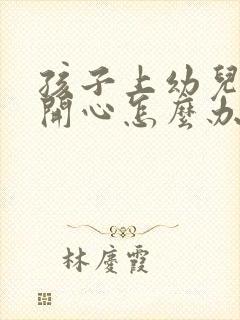 孩子上幼兒
開心怎麼办
林慶霞